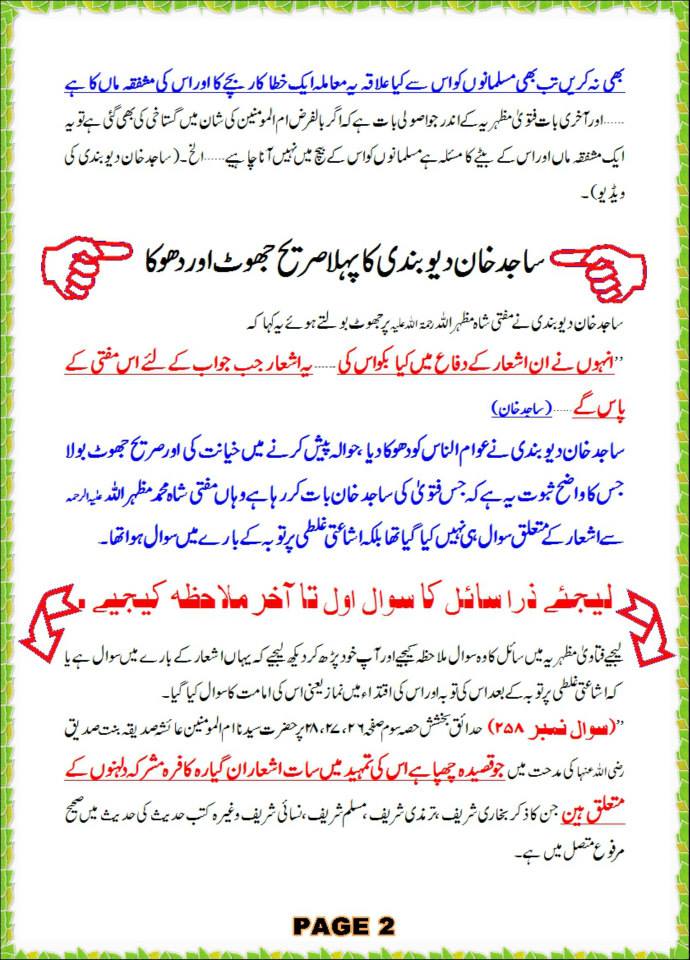 بھی نہ کریں تب بھی مسلمانوں کو اس سے کیا علاقہ یہ معاملہ ایک خطا کار بچے کا اور اس کی مشفقہ ماں کا ہے
......اور آخری بات فتویٰ مظہریہ کے اندر جو اصولی بات ہے کہ اگر بالفرض ام المومنین کی شان میں گستاخی کی بھی گئی ہے تو یہ
ایک مشفقہ ماں اور اس کے بیٹے کا مسئلہ ہے مسلمانوں کو اس کے بیچ میں نہیں آنا چاہیے......الخ۔(ساجد خان دیوبندی کی
ویڈیو)۔
ساجد خان دیوبندی کا پہلا صریح جھوٹ اور دھوکا
ساجد خان دیوبندی نے مفتی شاہ مظہر اللہ رحمۃ اللہ علیہ پر جھوٹ بولتے ہوئے یہ کہا کہ
’’انہوں نے ان اشعار کے دفاع میں کیا بکواس کی......یہ اشعار جب جواب کے لئے اس مفتی کے
پاس گے......(ساجد خان)
ساجد خان دیوبندی نے عوام الناس کو دھوکا دیا، حوالہ پیش کرنے میں خیانت کی اور صریح جھوٹ بولا
جس کا واضح ثبوت یہ ہے کہ جس فتویٰ کی ساجد خان بات کر رہا ہے وہاں مفتی شاہ محمد مظہر اللہ علیہ الرحمہ
سے اشعار کے متعلق سوال ہی نہیں کیا گیا تھا بلکہ اشاعتی غلطی پر توبہ کے بارے میں سوال ہوا تھا۔
لیجئے ذرا سائل کا سوال اول تا آخر ملاحظہ کیجیے .
لیجیے فتاویٰ مظہریہ میں سائل کا وہ سوال ملاحظہ کیجیے اور آپ خود پڑھ کر دیکھ لیجیے کہ یہاں اشعار کے بارے میں سوال ہے یا
کہ اشاعتی غلطی پر توبہ کے بعد اس کی توبہ اور اس کی اقتداء میں نماز یعنی اس کی امامت کا سوال کیا گیا۔
’’(سوال نمبر ۲۵۸) حدائق بخشش حصہ سوم صفحہ ۲۶، ۲۷، ۲۸ پر حضرت سیدنا ام المومنین عائشہ صدیقہ بنت صدیق
رضی اللہ عنہا کی مدحت میں جو قصیدہ چھپا ہے اس کی تمہید میں سات اشعار ان گیارہ کافرہ مشرکہ دلہنوں کے
متعلق ہین جن کا ذکر بخاری شریف، ترمذی شریف، مسلم شریف، نسائی شریف وغیرہ کتب حدیث کی حدیث میں صحیح
مرفوع متصل میں ہے۔
PAGE 2